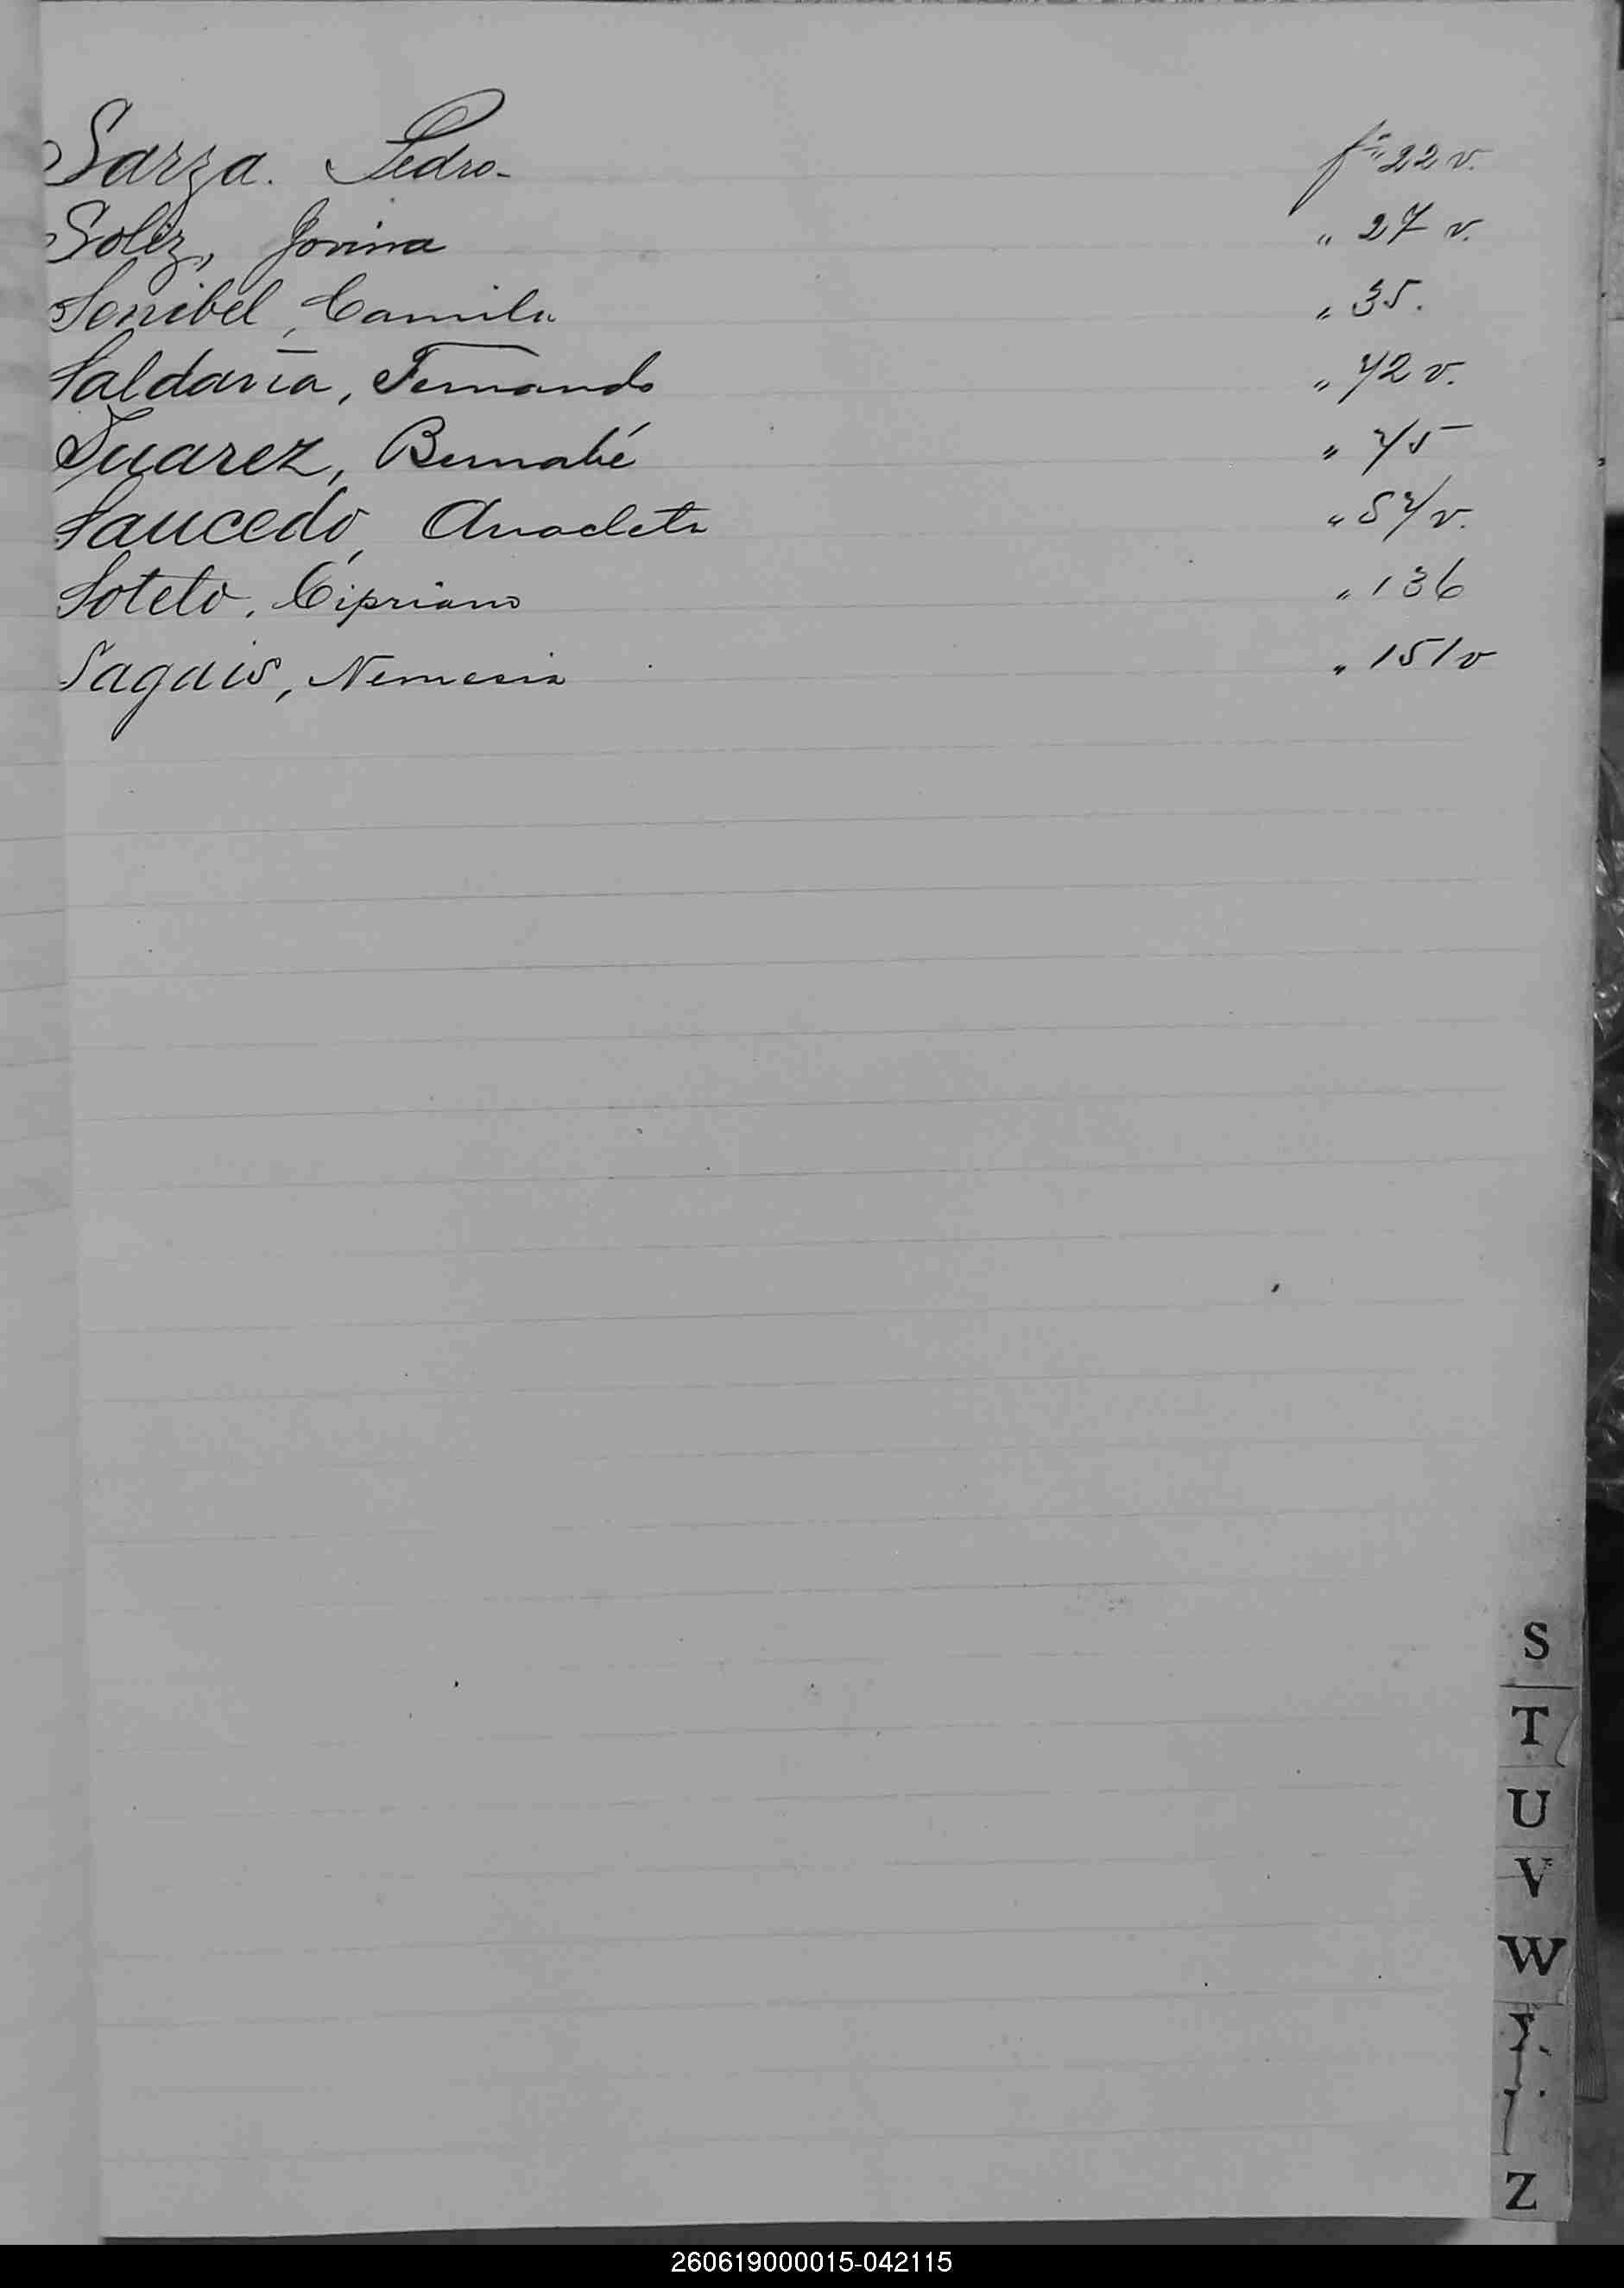 Sarza. Pedro- fs 22 v.
Soliz, Jovina " 27 v.
Senibel, Camilo " 35.
Saldaña, Fernando " 42 v.
Suarez, Bernabé " 45
Saucedo, Anacleto " 54 v.
Sotelo, Cipriano " 136
Sagais, Nemesia " 151 v
S
T
U
V
W
Z
260619000015-042115